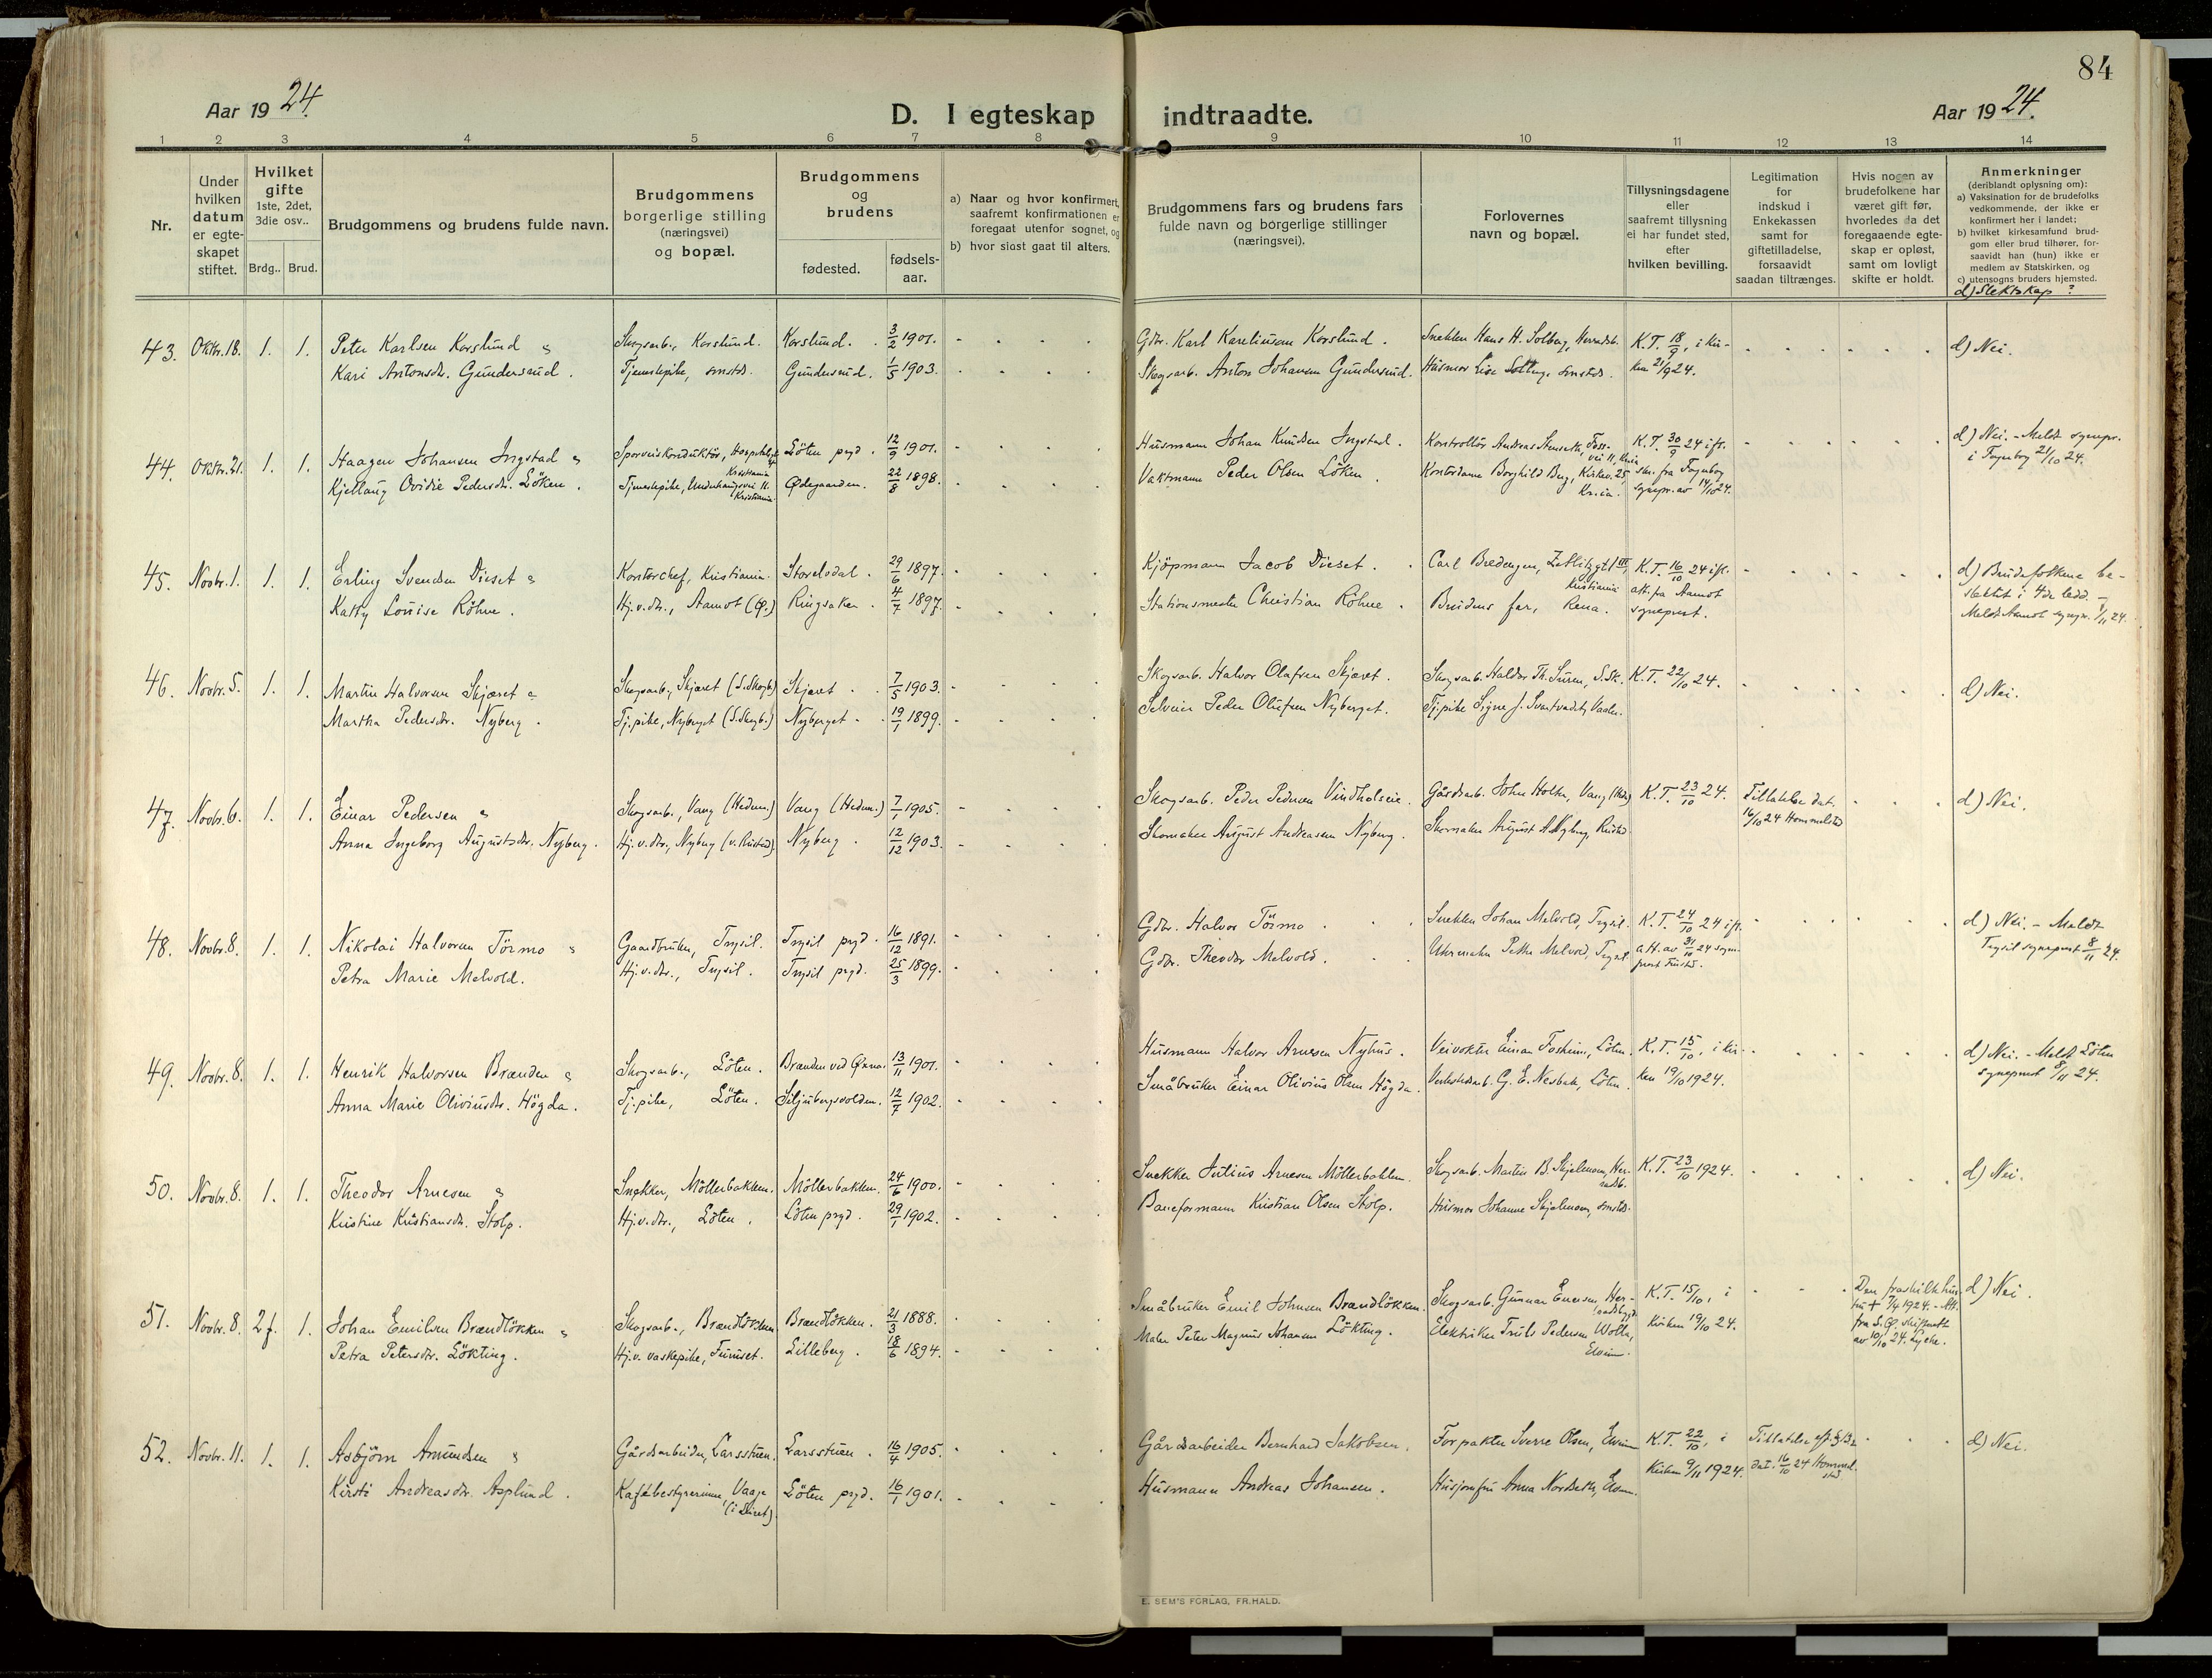 84
Aar 1924.
D. I egteskap indtraadte.
Aar 1924.
1 2 3 4 5 6 7 8 9 10 11 12 13 14
Nr.
Under hvilken datum er egteskapet stiftet.
Hvilket gifte 1ste, 2det, 3die osv..
Brdg.. Brud.
Brudgommens og brudens fulde navn.
Brudgommens borgerlige stilling (næringsvei) og bopæl.
Brudgommens og brudens
fødested. fødselsaar.
a) Naar og hvor konfirmert, saafremt konfirmationen er foregaat utenfor sognet, og
b) hvor sidst gaat til alters.
Brudgommens fars og brudens fars fulde navn og borgerlige stillinger (næringsvei).
Forlovernes navn og bopæl.
Tillysningsdagene eller saafremt tillysning ei har fundet sted, efter hvilken bevilling.
Legitimation for indskud i Enkekassen samt for giftetilladelse, forsaavidt saadan tiltrænges.
Hvis nogen av brudefolkene har været gift før, hvorledes da det foregaaende egteskap er opløst, samt om lovligt skifte er holdt.
Anmerkninger
(deriblandt oplysning om):
a) Vaksination for de brudefolks vedkommende, der ikke er konfirmert her i landet;
b) hvilket kirkesamfund brudgom eller brud tilhører, forsaavidt han (hun) ikke er medlem av Statskirken, og
c) utensogns bruders hjemsted.
d) Slektskap?
43. Oktr. 18. 1. 1. Peter Karlsen Korslund Skogsarb., Korslund. Korslund. 3/2 1901. Gdbr. Karl Kareliusen Korslund. Snekker Hans H. Solberg, K.T. 18/9, i kir- d) Nei.
Kari Antonsdtr. Gundersrud. Tjenestepike, smstds. Gundersrud. 1/5 1903. Skogsarb. Anton Johansen Gundersrud. Husmor Lise smstds. ken 21/9 24.
44. Oktr. 21. 1. 1. Haagen Johansen Ingstad Sporveiskonduktør, Kristiania Løten prgd. 12/9 1901. Husmann Johan Knudsen Ingstad. Kontrollør Andreas Stenseth, vei 11, K.T. 30/9 24 ifl. d) Nei. - Meldt sognepr. i Fagerborg 21/10 24.
Kjellaug Ovidie Pedersdtr. Løken. Tjenestepike, Underhaugsvei 11. Kristiania. Ødegaarden. 22/8 1898. Vaktmann Peder Olsen Løken. Kontordame Borghild Berg, Kirkev. 25, Kr.ia. fra Fagerborg sognepr. av 14/10 24.
45. Novbr. 1. 1. 1. Erling Svendsen Dieset Kontorchef, Kristiania. Storelvdal. 29/6 1897. Kjøpmann Jacob Dieset. Carl Bredengen, Kristiania K.T. 16/10 24 ifl. d) Brudefolkene be-
Katty Louise Röhne. Hj.v.dtr., Aamot (Ø.) Ringsaker. 4/7 1897. Stationsmester Christian Röhne. Brudens far, Rena. att. fra Aamot sogneprest. slektet i 4de ledd. - Meldt Aamot sognepr. 1/11 24.
46. Novbr. 5. 1. 1. Martin Halvorsen Skjæret Skogsarb., Skjæret (S. Skogb.) Skjæret. 7/5 1903. Skogsarb. Halvor Olafsen Skjæret. Skogsarb. Haldor Th. Suren, S. Sk. K.T. 22/10 24. d) Nei.
Martha Pedersdtr. Nyberg. Tj.pike, Nyberget (S. Skogb.) Nyberget. 19/1 1899. Selveier Peder Olufsen Nyberget. Tj.pike Signe J.
47. Novbr. 6. 1. 1. Einar Pedersen Skogsarb., Vang (Hedm.) Vang (Hedm.) 7/1 1905. Skogsarb. Peder Pedersen Vindholseie. Gårdsarb. John Holth, Vang K.T. 23/10 24. Tillatelse dat. 16/10 24 Hommelstad d) Nei.
Anna Ingeborg Augustsdtr. Nyberg. Hj.v.dtr., Nyberg (v. Rustad) Nyberg. 12/12 1903. Skomaker August Andreasen Nyberg. Skomaker August A. Nyberg, Rustad
48. Novbr. 8. 1. 1. Nikolai Halvorsen Törmo Gaardbruker, Trysil. Trysil prgd. 16/12 1891. Gdbr. Halvor Törmo. Snekker Johan Melvold, Trysil. K.T. 24/10 24 ifl. d) Nei. - Meldt
Petra Marie Melvold. Hj.v.dtr., Trysil. Trysil prgd. 25/3 1899. Gdbr. Theodor Melvold. Uhrmaker Petter Melvold, Trysil att. av 31/10 24 sogneprest Trysil sogneprest 8/11 24.
49. Novbr. 8. 1. 1. Henrik Halvorsen Brænden Skogsarb., Löten. Brænden ved Ørna. 13/11 1901. Husmann Halvor Arnesen Nyhus. Veivokter Einar Fosheim, Löten. K.T. 15/10, i kir- d) Nei. - Meldt Löten
Anna Marie Oliviusdtr. Högda. Tj.pike, Löten. Siljubergsvolden. 12/7 1902. Småbruker Einar Olivius Olsen Högda. Verkstedarb. G. E. Nesbak, Löten. ken 19/10 1924. sogneprest 8/11 24.
50. Novbr. 8. 1. 1. Theodor Arnesen Snekker, Möllerbakken. Möllerbakken. 24/6 1900. Snekker Julius Arnesen Möllerbakken. Skogsarb. Martin B. Skjelmoen, Her- K.T. 23/10 1924. d) Nei.
Kristine Kristiansdtr. Stolp. Hj.v.dtr., Löten. Löten prgd. 29/1 1902. Baneformann Kristian Olsen Stolp. Husmor Johanne Skjelmoen, smstds.
51. Novbr. 8. 2 f. 1. Johan Emilsen Brændløkken Skogsarb., Brændløkken Brændløkken. 21/3 1888. Småbruker Emil Johnsen Brændløkken. Skogsarb. Gunnar Enersen Her- K.T. 15/10, i Den fraskilte hustru + 7/4 1924. - Att. fra S.Ø. skifterett av 10/10 24. d) Nei.
Petra Petersdtr. Lökting. Hj.v. vaskepike, Furuset. Lilleberg. 18/6 1894. Maler Peter Magnus Johansen Lökting. Elektriker Truls Pedersen Wolla, Elverum. Kirken 19/10 24.
52. Novbr. 11. 1. 1. Asbjörn Amundsen Gårdsarbeider, Larsstuen. Larsstuen. 16/4 1905. Gårdsarbeider Bernhard Jakobsen. Forpakter Sverre Olsen, Elverum K.T. 22/10, i Tillatelse dat. 16/10 24 Hommelstad d) Nei.
Kirsti Andreasdtr. Asplund. Kafébestyrerinne, Vaage Löten prgd. 16/1 1901. Husmann Andreas Johansen. Husjomfru Anna Nordseth, Elverum. Kirken 9/11 1924.
E. SEM'S FORLAG, FR.HALD.